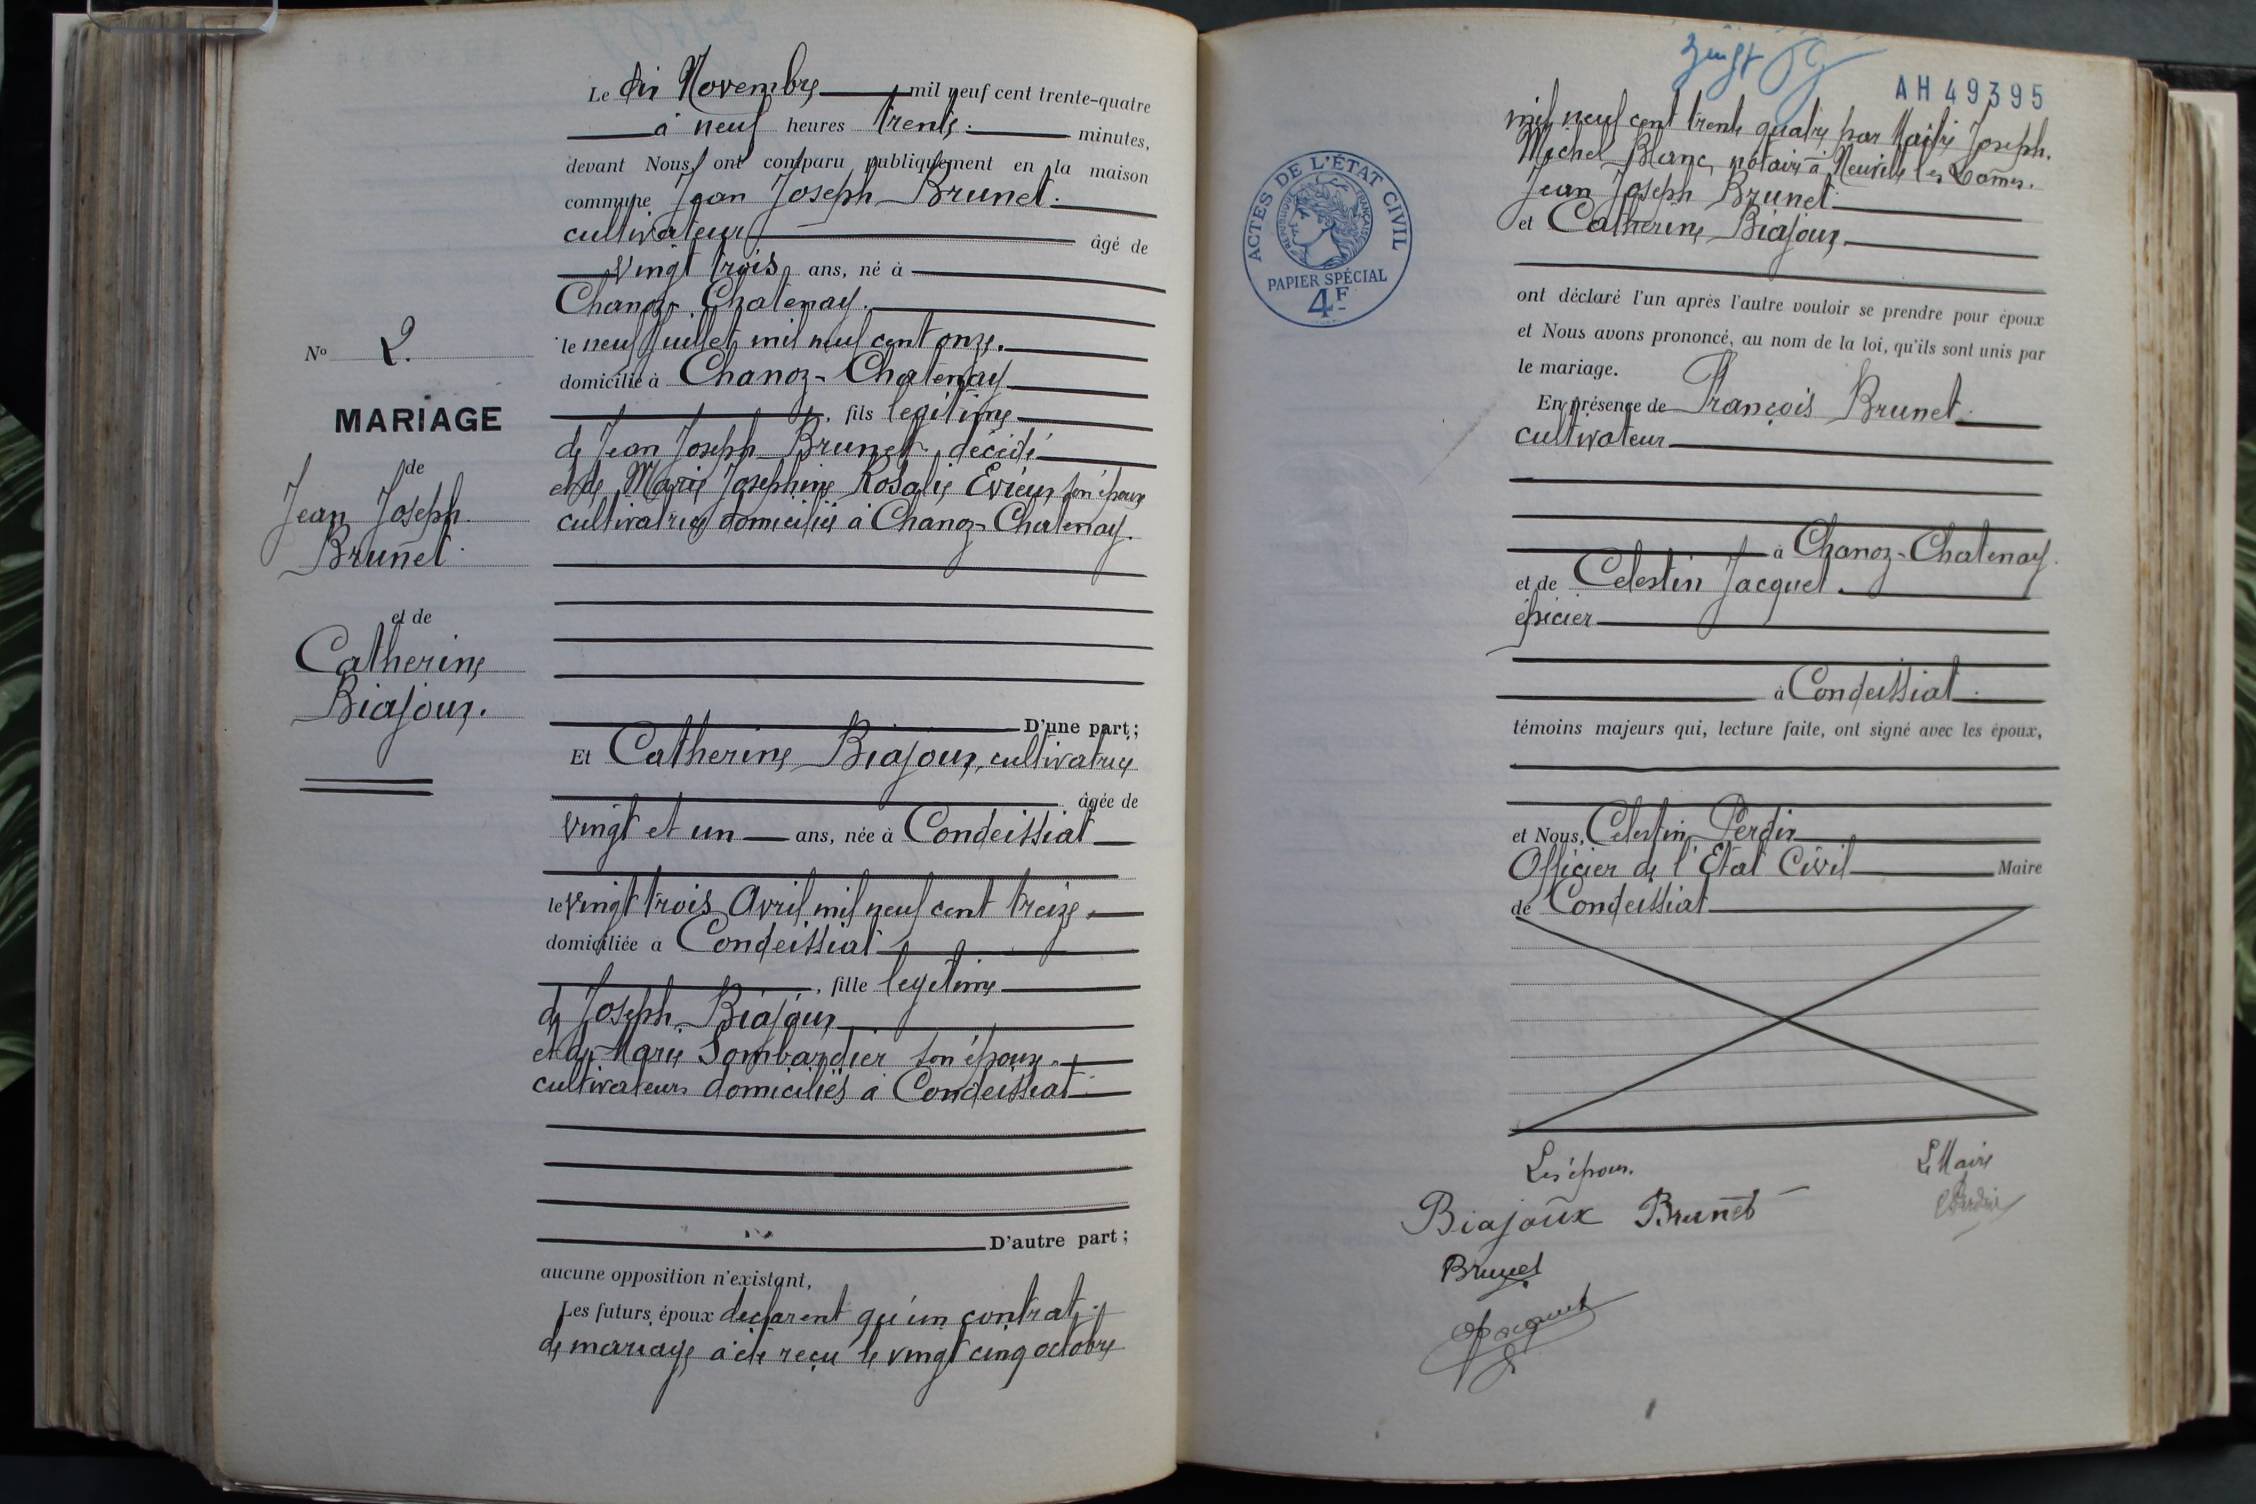 N° 2.
MARIAGE
de
Jean Joseph
Brunet
et de
Catherine
Biajoux.
Le dix Novembre mil neuf cent trente-quatre
à neuf heures trente minutes,
devant Nous, ont comparu publiquement en la maison
commune Jean Joseph Brunet
cultivateur âgé de
vingt trois ans, né à
Chanoz-Chatenay.
le neuf Juillet mil neuf cent onze.
domicilié à Chanoz-Chatenay
, fils legitime
de Jean Joseph Brunet, décédé
et de Marie Josephine Rosalie Evieux son épouse
cultivatrice domiciliée à Chanoz-Chatenay.
D'une part;
Et Catherine Biajoux, cultivatrice
âgée de
vingt et un ans, née à Condeissiat
le vingt trois Avril mil neuf cent treize.
domiciliée à Condeissiat
, fille legitime
de Joseph Biajoux
et de Marie Lombardier son épouse.
cultivateurs domiciliés à Condeissiat
D'autre part;
aucune opposition n'existant,
Les futurs époux declarent qu'un contrat
de mariage a été reçu le vingt cinq octobre
AH 49395
mil neuf cent trente quatre par Maitre Joseph
Michel Blanc, notaire à Neuville les Dames.
Jean Joseph Brunet
et Catherine Biajoux
ACTES DE L'ÉTAT CIVIL
RÉPUBLIQUE FRANÇAISE
PAPIER SPÉCIAL
4F
ont déclaré l'un après l'autre vouloir se prendre pour époux
et Nous avons prononcé, au nom de la loi, qu'ils sont unis par
le mariage.
En présence de François Brunet
cultivateur
à Chanoz-Chatenay
et de Celestin Jacquet
épicier
à Condeissiat
témoins majeurs qui, lecture faite, ont signé avec les époux,
et Nous, Celestin Perdrix
Officier de l'Etat Civil Maire
de Condeissiat
Les époux. Le Maire
Biajoux Brunet Perdrix
Brunet
Jacquet